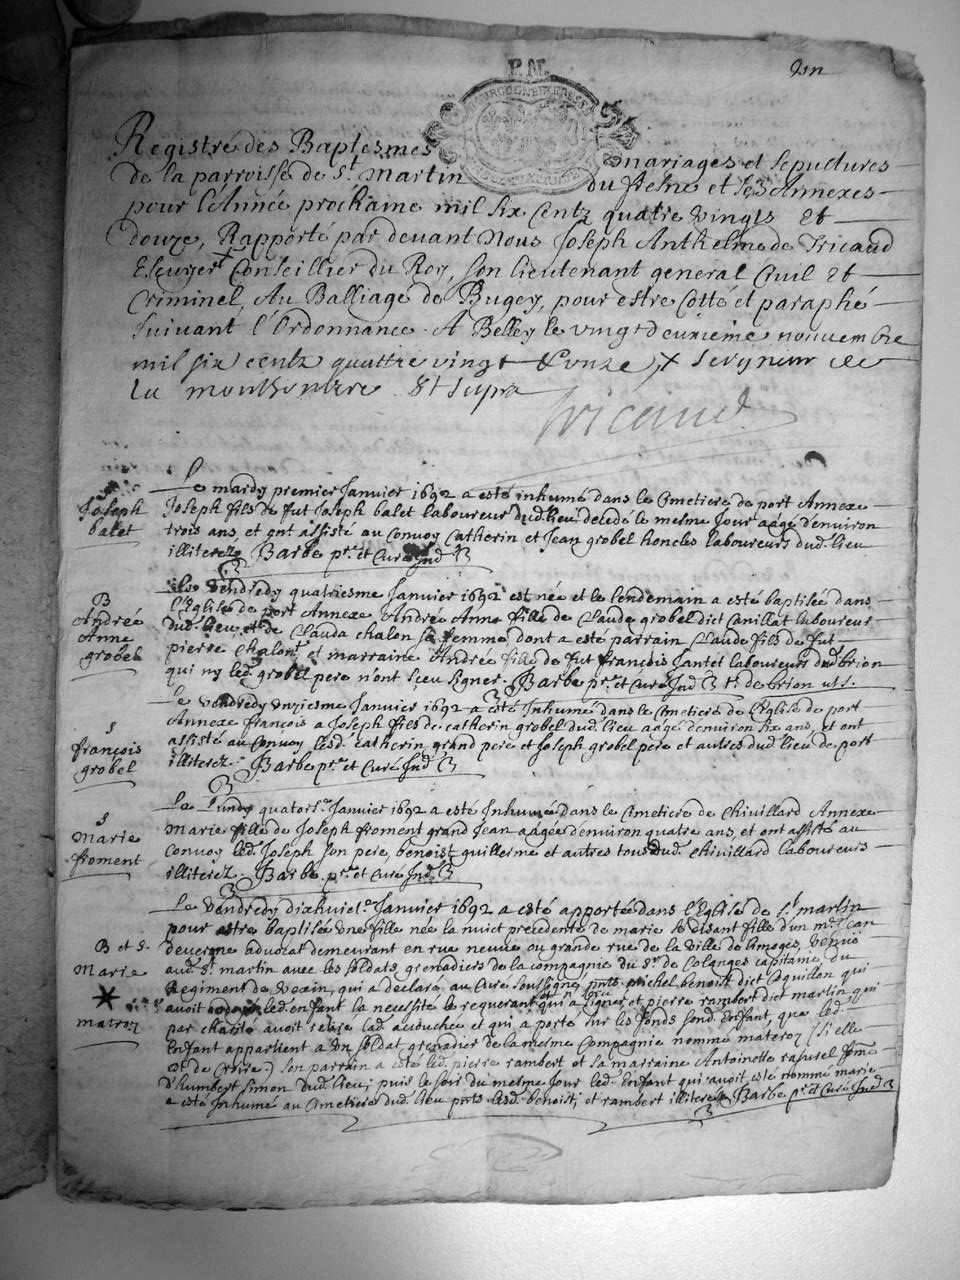 P. N.
Registre des Baptesmes mariages et sepultures
de la parroisse de St. Martin du fresne et ses Annexes
pour l'Année prochaine mil six Centz quatre vingts et
douze, Rapporté par devant Nous Joseph Anthelme de Tricaud
Escuyer + Conseillier du Roy, son lieutenant general Civil et
Criminel, Au Balliage de Bugey, pour estre Cotté et paraphé
suivant l'Ordonnance. A Belley le vingt deuxieme novembre
mil six centz quattre vingt & onze, + seigneur de
la
Tricaud
Joseph
balet
Le mardy premier Janvier 1692 a esté inhumé dans le Cimetiere de port Annexe
Joseph fils de fut Joseph balet laboureur dud. lieu decedé le mesme Jour aagé d'environ
trois ans, et ont assisté au Convoy Catherin et Jean grobel honcles laboureurs dud. lieu
illiterez Barbe ptr. et Curé Ind.
B
Andrée
Anne
grobel
Le Vendredy quatriesme Janvier 1692 est née et le lendemain a esté baptisée dans
l'Eglise de port Annexe Andrée Anne fille de Claude grobel dict Canillat laboureur
dud. lieu, et de Clauda chalon sa femme, dont a esté parrain Claude fils de fut
pierre Chalon, et marraine Andrée fille de fut françois Jantet laboureurs dud. brion
qui ny led. grobel pere n'ont sceu signer. Barbe ptr. et Curé Ind.
S
françois
grobel
Le vendredy unziesme Janvier 1692 a esté Inhumé dans le Cimetiere de l'Eglise de port
Annexe françois a Joseph fils de catherin grobel dud. lieu aagé d'environ six ans, et ont
assisté au Convoy lesd. catherin grand pere et Joseph grobel pere et autres dud. lieu de port
illiterez. Barbe ptr. et Curé Ind.
S
Marie
froment
Le Lundy quatorse. Janvier 1692 a esté Inhumé dans le Cimetiere de Chivillard Annexe
Marie fille de Joseph froment grand Jean aagée d'environ quatre ans, et ont assisté au
Convoy led. Joseph son pere, benoist guillerme et autres tous dud. Chivillard laboureurs
illiterez. Barbe ptr. et Curé Ind.
B et S.
Marie
Le Vendredy dixhuict. Janvier 1692 a esté apportée dans l'Eglise de St. martin
pour estre baptisée une fille née la nuict precedente de marie se disant fille d'un mr. Jean
devergne advocat demeurant en rue neuve ou grande rue de la ville de limoges, venue
aud. St. martin avec les soldats grenadiers de la compagnie du Sr. de Colanges capitaine du
Regiment de Vexin, qui a declaré au Curé soussigné pnts. michel benoist dict Coquillon qui
avoit led. enfant la necessité le requerant et pierre rambert dict martin qui
par charité avoit retiré lad. accouchée et qui a porté sur les fonds sond. Enfant, que led.
Enfant appartient a un soldat grenadier de la mesme Compagnie nommé materoz (si elle
est de croire) son parrain a esté led. pierre rambert et sa marraine Antoinette femme
d'humbert simon dud. lieu; puis le soir du mesme Jour led. Enfant qui avoit esté nommé marie
a esté Inhumé au Cimetiere dud. lieu pnts. lesd. benoist, et rambert illiterez Barbe ptr. et Curé Ind.